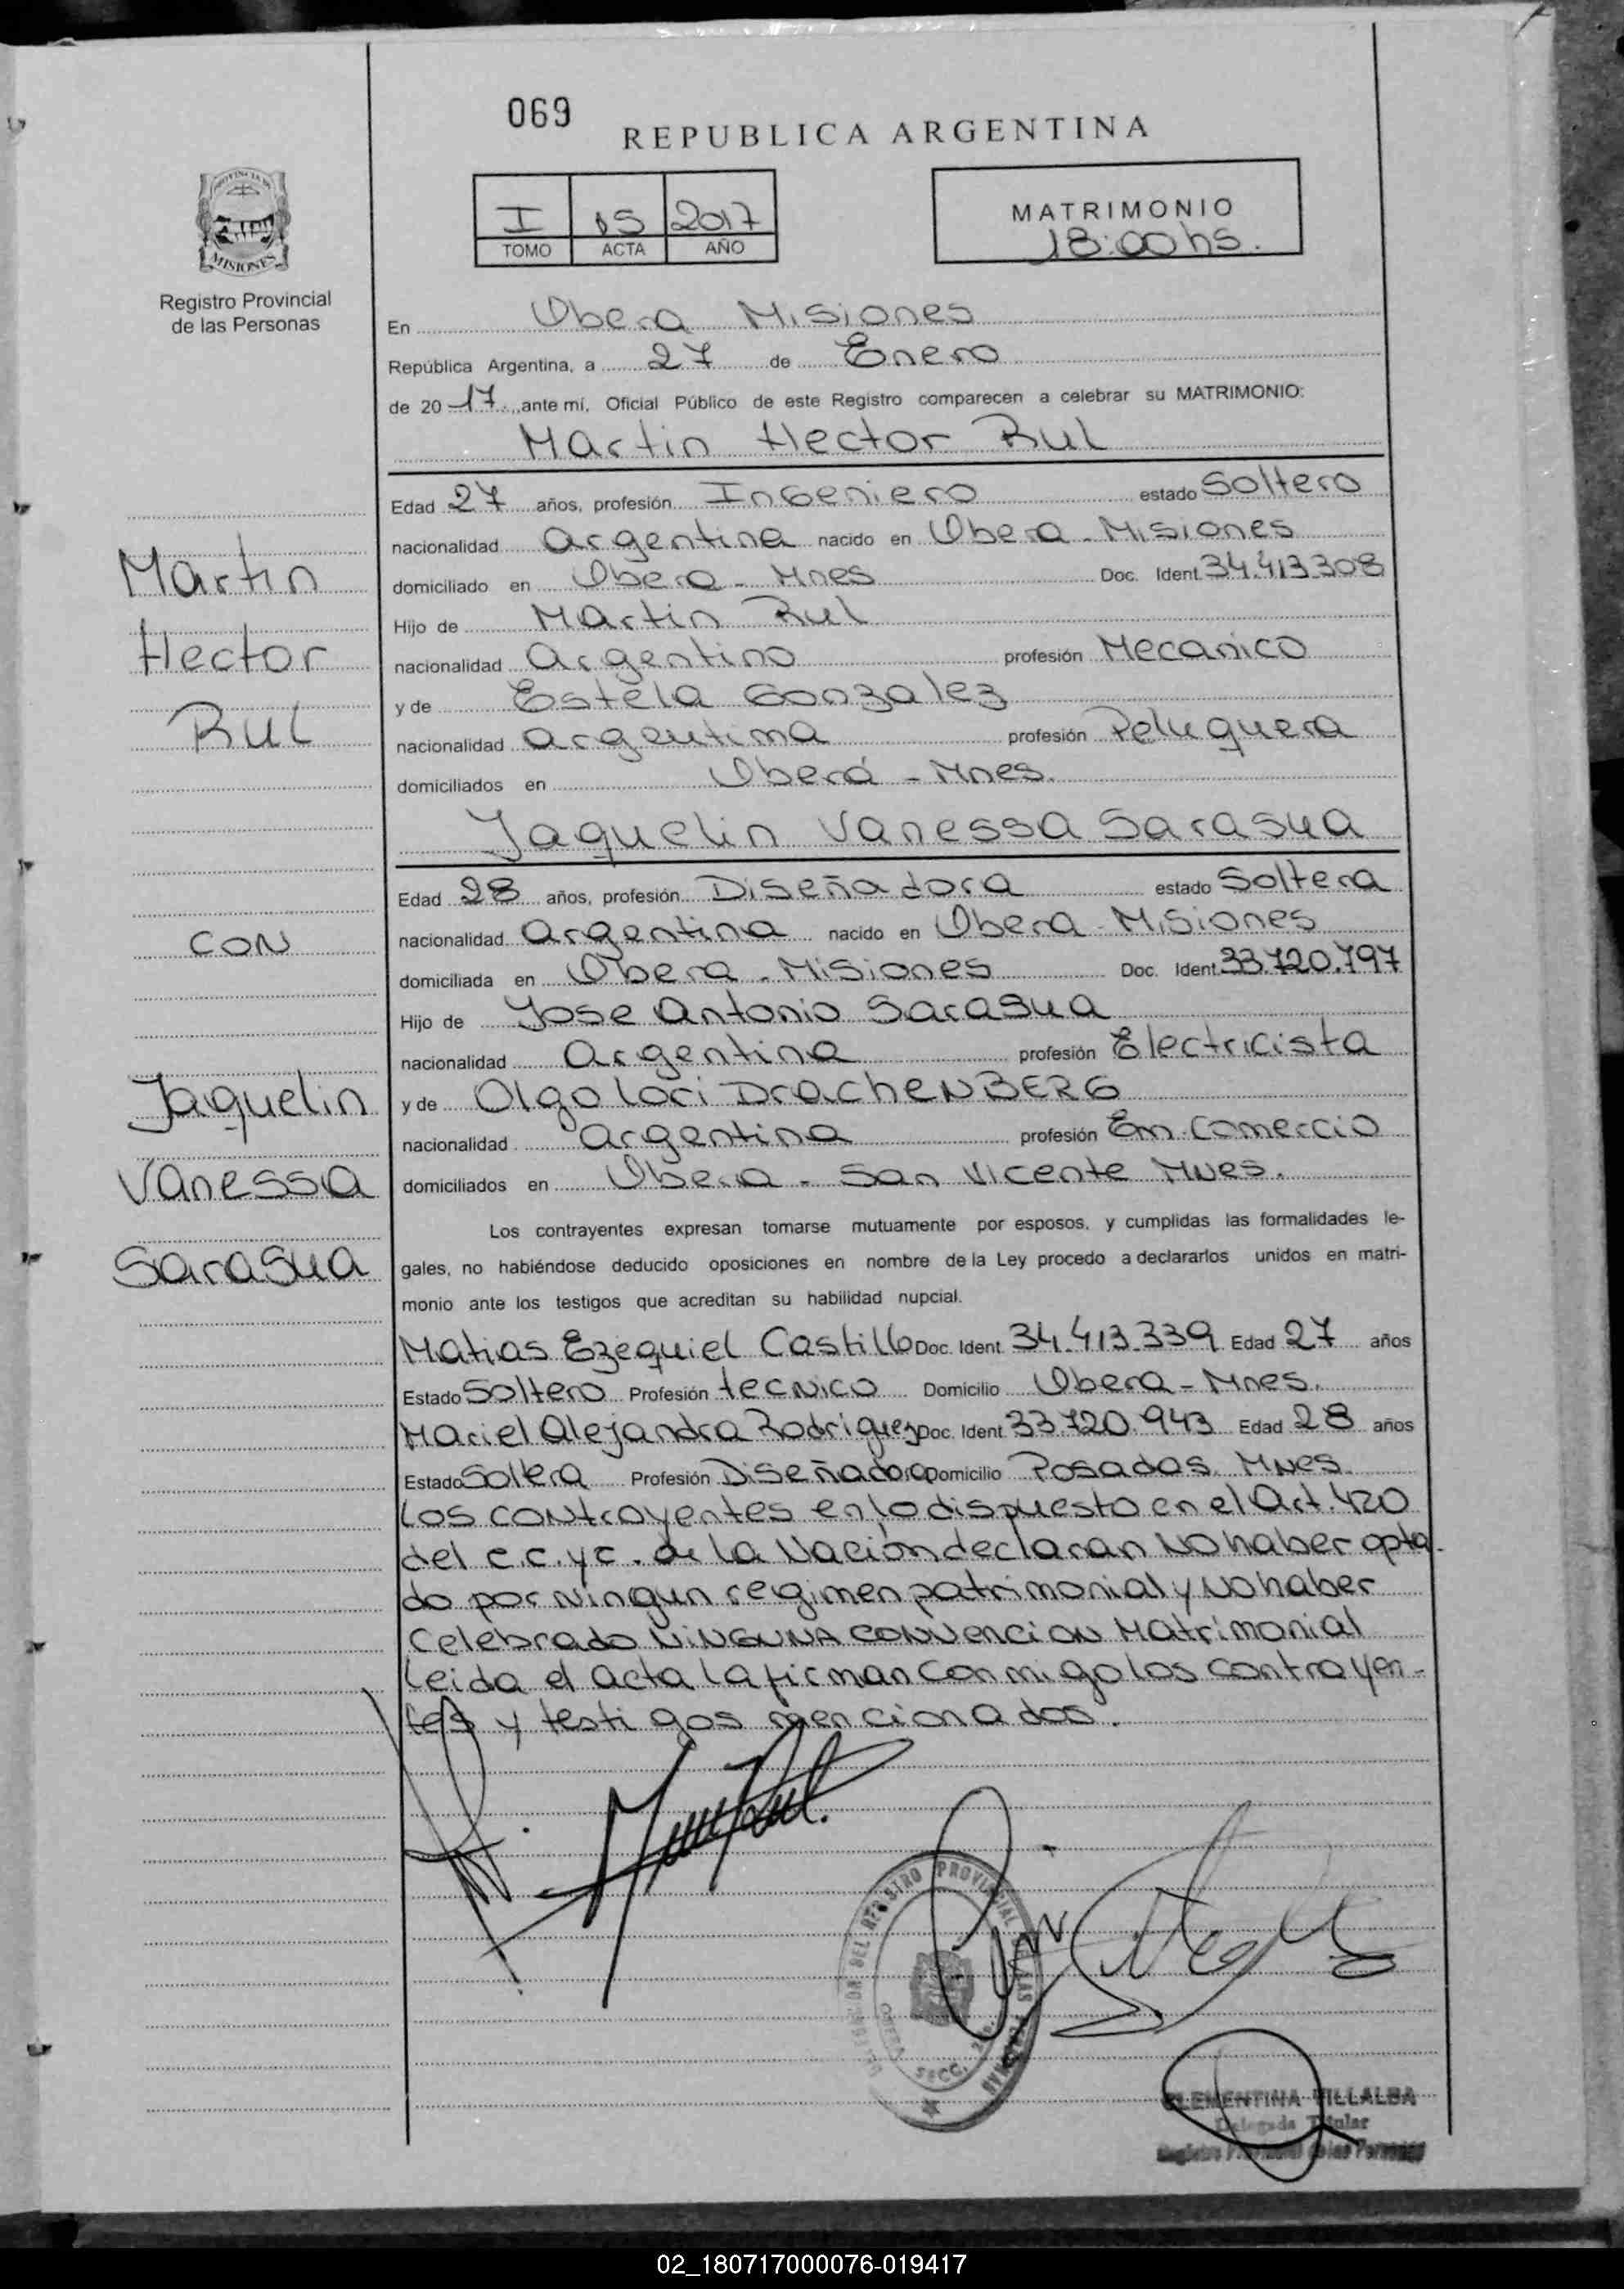 069
REPUBLICA ARGENTINA
PROVINCIA DE
MISIONES
Registro Provincial
de las Personas
I 2017
TOMO ACTA AÑO
MATRIMONIO
18:00 hs.
En Obera Misiones
República Argentina, a 27 de Enero
de 20 17 ante mí, Oficial Público de este Registro comparecen a celebrar su MATRIMONIO:
Martin Hector Rul
Edad 27 años, profesión Ingeniero estado Soltero
nacionalidad Argentina nacido en Obera - Misiones
domiciliado en Obera - Mnes Doc. Ident. 34.413.308
Hijo de Martin Rul
nacionalidad Argentino profesión Mecanico
y de Estela Gonzalez
nacionalidad argentina profesión Peluquera
domiciliados en Oberá - Mnes.
Jaquelin Vanessa Sarasua
Edad 28 años, profesión Diseñadora estado Soltera
nacionalidad Argentina nacido en Obera - Misiones
domiciliada en Obera - Misiones Doc. Ident. 33.720.797
Hijo de Jose Antonio Sarasua
nacionalidad Argentina profesión Electricista
y de Olga Lori DrachenBERG
nacionalidad Argentina profesión Em. Comercio
domiciliados en Obera - San Vicente Mnes.
Los contrayentes expresan tomarse mutuamente por esposos, y cumplidas las formalidades le-
gales, no habiéndose deducido oposiciones en nombre de la Ley procedo a declararlos unidos en matri-
monio ante los testigos que acreditan su habilidad nupcial.
Matias Ezequiel Castillo Doc. Ident. 34.413.339 Edad 27 años
Estado Soltero Profesión tecnico Domicilio Obera - Mnes.
Mariel Alejandra Rodriguez Doc. Ident. 33.720.943 Edad 28 años
Estado Soltera Profesión Diseñadora Domicilio Posadas Mnes.
Los contrayentes en lo dispuesto en el Art. 420
del c.c.yc. de la Nacion declaran No haber opta-
do por Ningun regimen patrimonial y No haber
Celebrado NINGUNA CONVENCION Matrimonial
Leida el acta la firman conmigo los contrayen-
tes y testigos mencionados.
Martin
Hector
Rul
CON
Jaquelin
Vanessa
Sarasua
DEL REGISTRO PROVINCIAL DE LAS PERSONAS
OBERA
SECC.
CLEMENTINA VILLALBA
Delegada Titular
Registro Provincial de las Personas
02_180717000076-019417